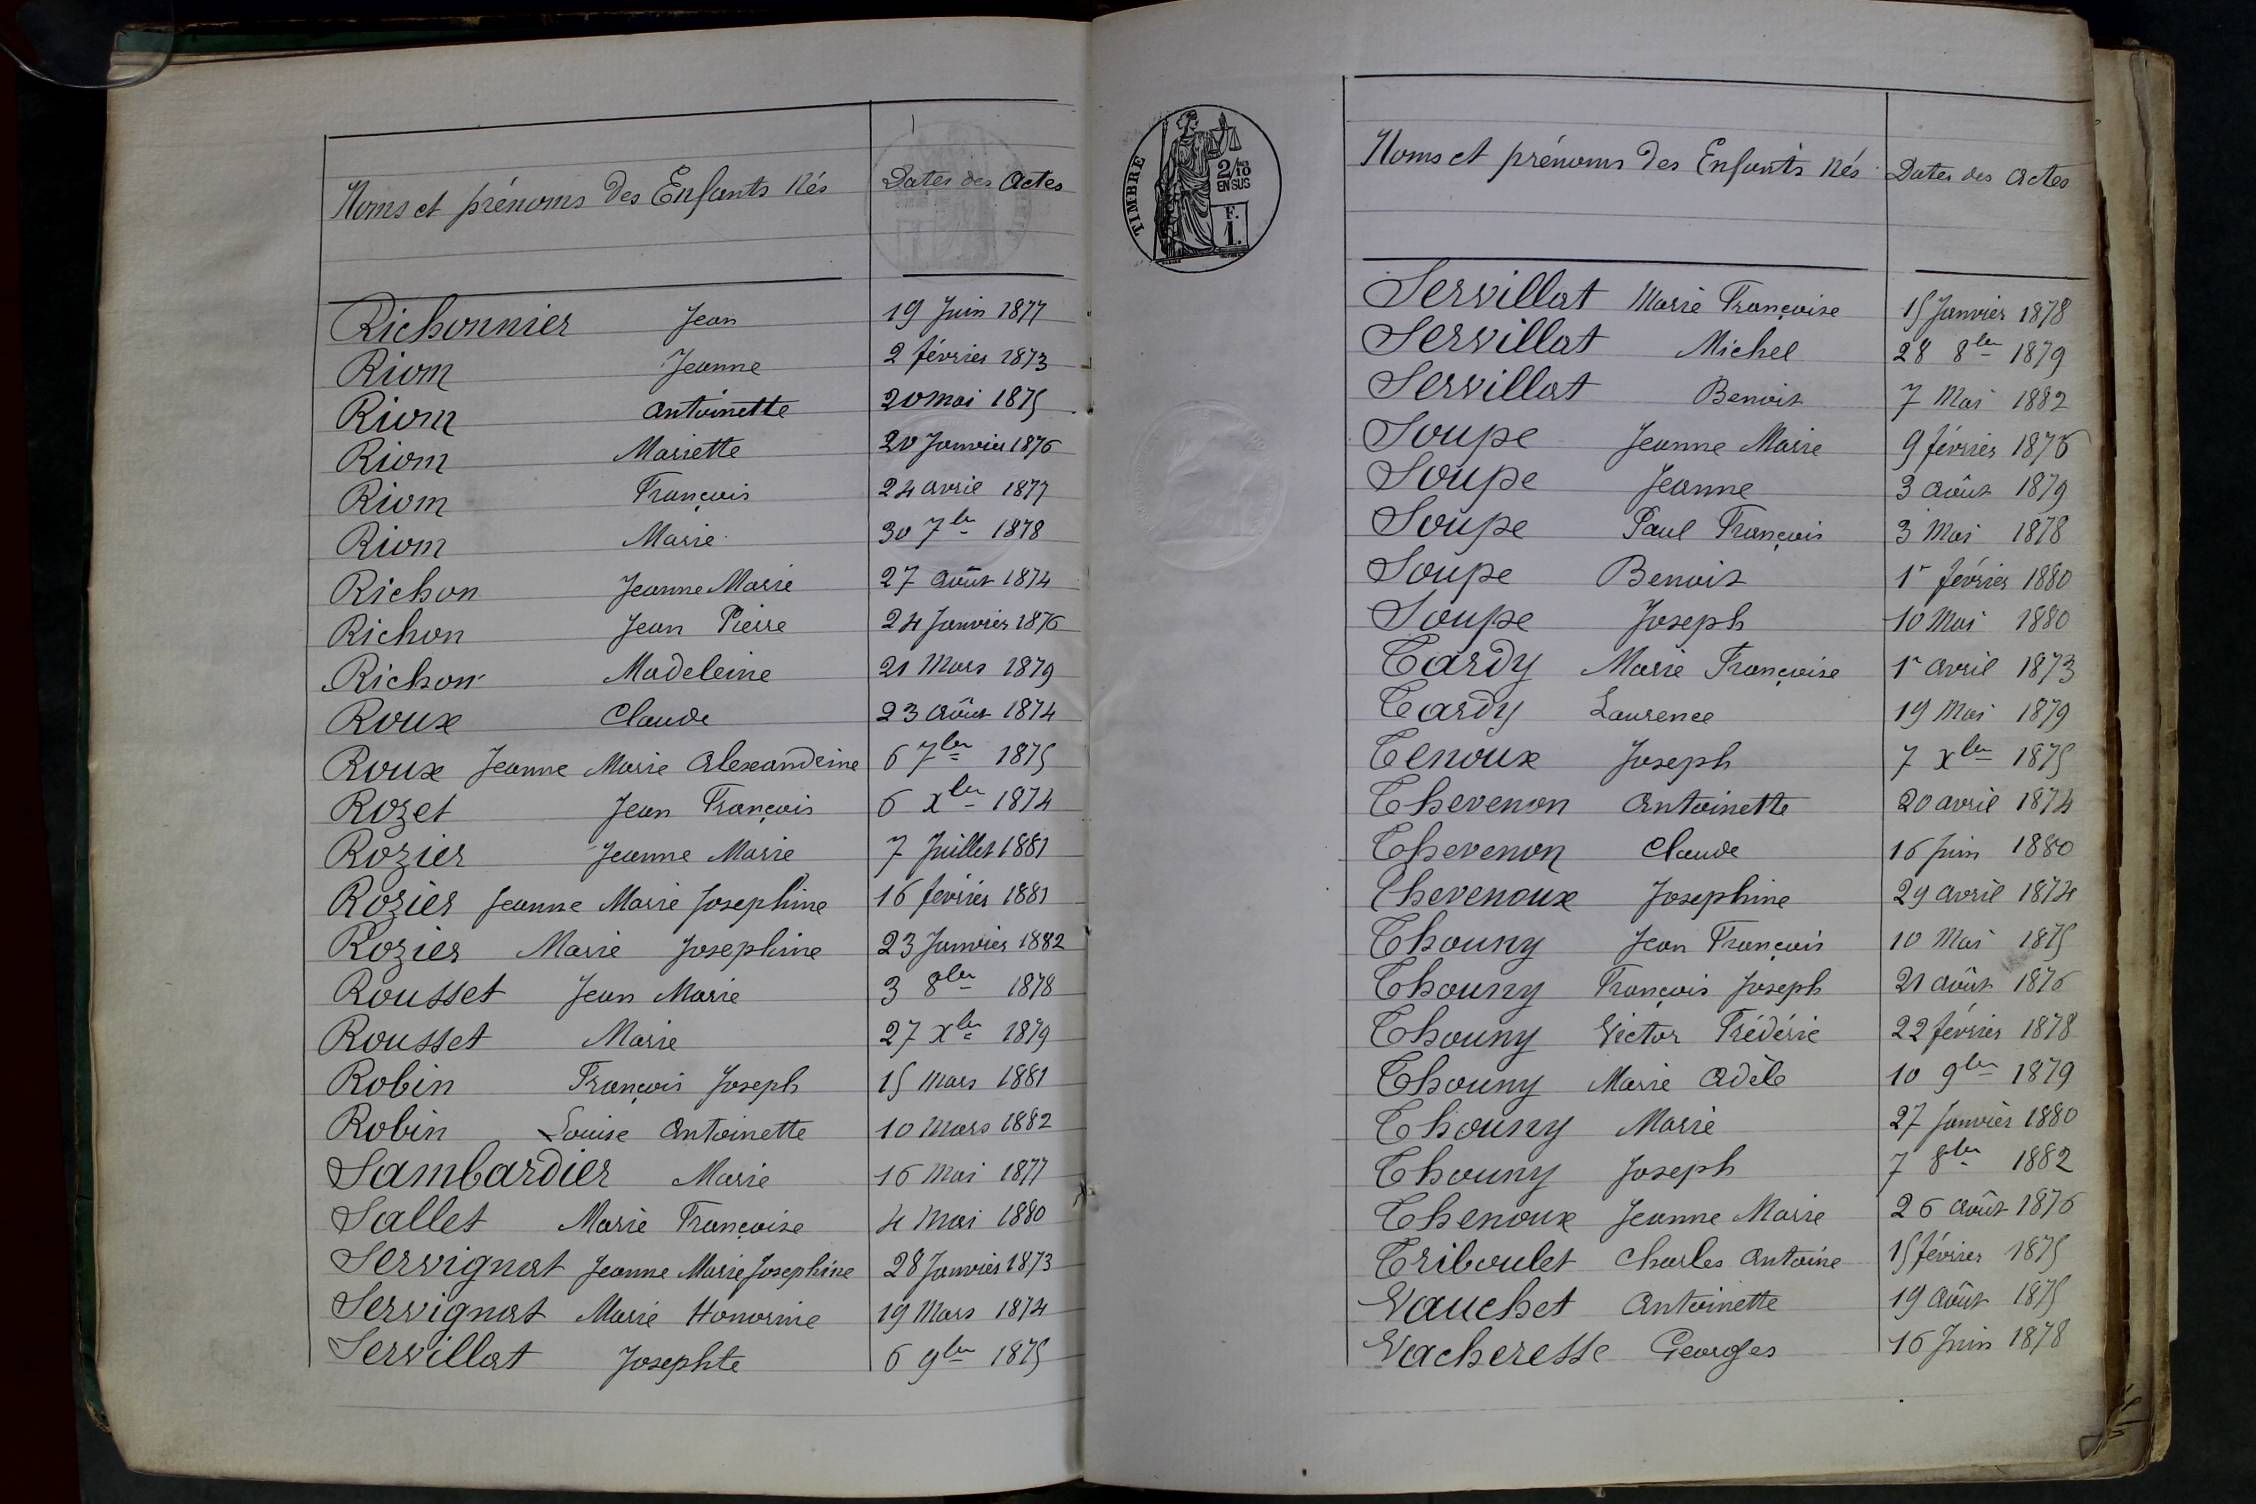 Noms et prénoms des Enfants Nés Dates des Actes
Richonnier Jean 19 Juin 1877
Riom Jeanne 2 février 1873
Riom Antoinette 20 mai 1875
Riom Mariette 20 Janvier 1876
Riom François 24 avril 1877
Riom Marie 30 7bre 1878
Richon Jeanne Marie 27 Août 1874
Richon Jean Pierre 24 Janvier 1876
Richon Madeleine 21 Mars 1879
Roux Claude 23 Août 1874
Roux Jeanne Marie Alexandrine 6 7bre 1875
Rozet Jean François 6 xbre 1874
Rozier Jeanne Marie 7 Juillet 1881
Rozier Jeanne Marie Josephine 16 février 1881
Rozier Marie Josephine 23 Janvier 1882
Rousset Jean Marie 3 8bre 1878
Rousset Marie 27 xbre 1879
Robin François Joseph 15 Mars 1881
Robin Louise Antoinette 10 Mars 1882
Sambardier Marie 16 Mai 1877
Sallet Marie Françoise 4 Mai 1880
Servignat Jeanne Marie Josephine 28 Janvier 1873
Servignat Marie Honorine 19 Mars 1874
Servillat Josephte 6 9bre 1875
TIMBRE
2/10
EN SUS
F.
1.
Noms et prénoms des Enfants Nés Dates des Actes
Servillat Marie Françoise 15 Janvier 1878
Servillat Michel 28 8bre 1879
Servillat Benoit 7 Mai 1882
Soupe Jeanne Marie 9 février 1876
Soupe Jeanne 3 Août 1879
Soupe Paul François 3 Mai 1878
Soupe Benoit 1r février 1880
Soupe Joseph 10 Mai 1880
Tardy Marie Françoise 1r avril 1873
Tardy Laurence 19 Mai 1879
Tenoux Joseph 7 xbre 1875
Thevenon Antoinette 20 avril 1874
Thevenon Claude 16 Juin 1880
Thevenoux Josephine 29 avril 1874
Thouny Jean François 10 Mai 1875
Thouny François Joseph 21 août 1876
Thouny Victor Frédéric 22 février 1878
Thouny Marie Adèle 10 9bre 1879
Thouny Marie 27 Janvier 1880
Thouny Joseph 7 8bre 1882
Thenoux Jeanne Marie 26 Août 1876
Triboulet Charles Antoine 15 février 1875
Vauchet Antoinette 19 Août 1875
Vacheresse Georges 16 Juin 1878